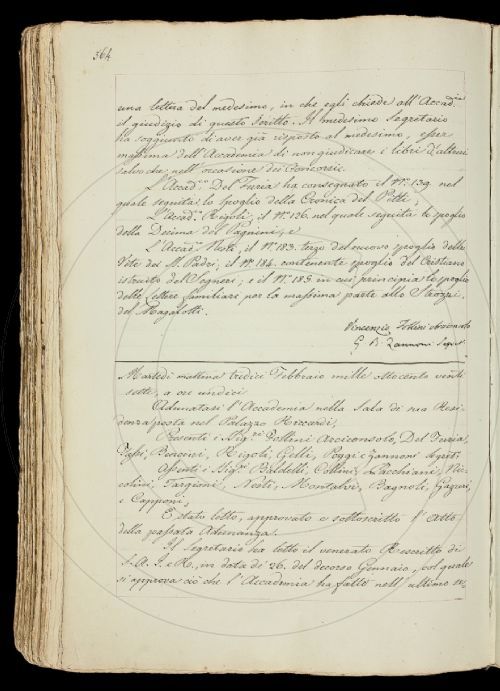 364
una lettera del medesimo, in che egli chiede all'Accad.ia
il giudizio di questo scritto. Il medesimo Segretario
ha soggiunto di aver già risposto al medesimo, esser
massima dell'Accademia di non giudicare i libri d'altrui
salvo che nell'occasione dei Concorsi.
L'Accad.co Del Furia ha consegnato il N.o 139. nel
quale seguita lo spoglio della Cronica del Pitti;
L'Accad.co Rigoli, il N.o 126. nel quale seguita lo spoglio
della Decima del Pagnini; e
L'Accad.co Nesti, il N.o 183. terzo del nuovo spoglio delle
Vite de' SS. Padri; il N.o 184. contenente spoglio del Cristiano
istruito del Segneri; e il N.o 185. in cui principia lo spoglio
delle Lettere familiari per la massima parte allo Strozzi,
del Magalotti.
Vincenzio Follini Arciconsolo
G. B. Zannoni Segret.
Martedì mattina tredici Febbraio mille ottocento venti
sette, a ore undici
Adunatasi l'Accademia nella Sala di sua Resi-
denza posta nel Palazzo Riccardi,
Presenti i Sig.ri Follini Arciconsolo, Del Furia,
Fossi, Bencini, Rigoli, Gelli, Poggi e Zannoni Segret.
Assenti i Sig.ri Baldelli, Collini, Pacchiani, Nic-
colini, Targioni, Nesti, Montalvi, Bagnoli, Gazzeri,
e Capponi;
È stato letto, approvato e sottoscritto l'Atto
della passata Adunanza.
Il Segretario ha letto il venerato Rescritto di
S. A. I. e R., in data de' 26. del decorso Gennaio, col quale
si approva ciò che l'Accademia ha fatto nell'ultimo